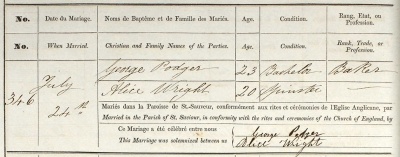 No. Date du Mariage. Noms de Baptême et de Famille des Mariés. Age. Condition. Rang, Etat, ou Profession.
No. When Married. Christian and Family Names of the Parties. Age. Condition. Rank, Trade, or Profession.
George Podger 23 Bachelor Baker
346 July 24th Alice Wright 20 Spinster
Mariés dans la Paroisse de St.-Sauveur, conformément aux rites et cérémonies de l'Eglise Anglicane, par
Married in the Parish of St. Saviour, in conformity with the rites and ceremonies of the Church of England, by
Ce Mariage a été célébré entre nous George Podger
This Marriage was solemnized between us Alice Wright